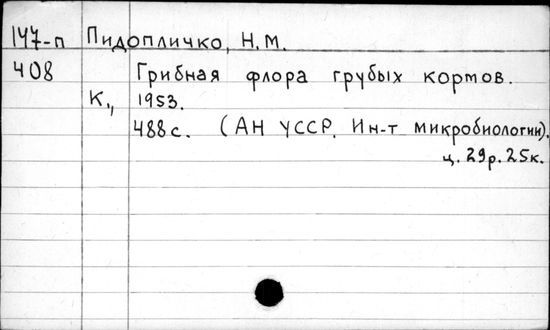 147-п Пидопличко, Н.М.
408 Грибная флора грубых кормов.
К., 1953.
488 с. (АН УССР. Ин-т микробиологии).
ц. 29р. 25к.